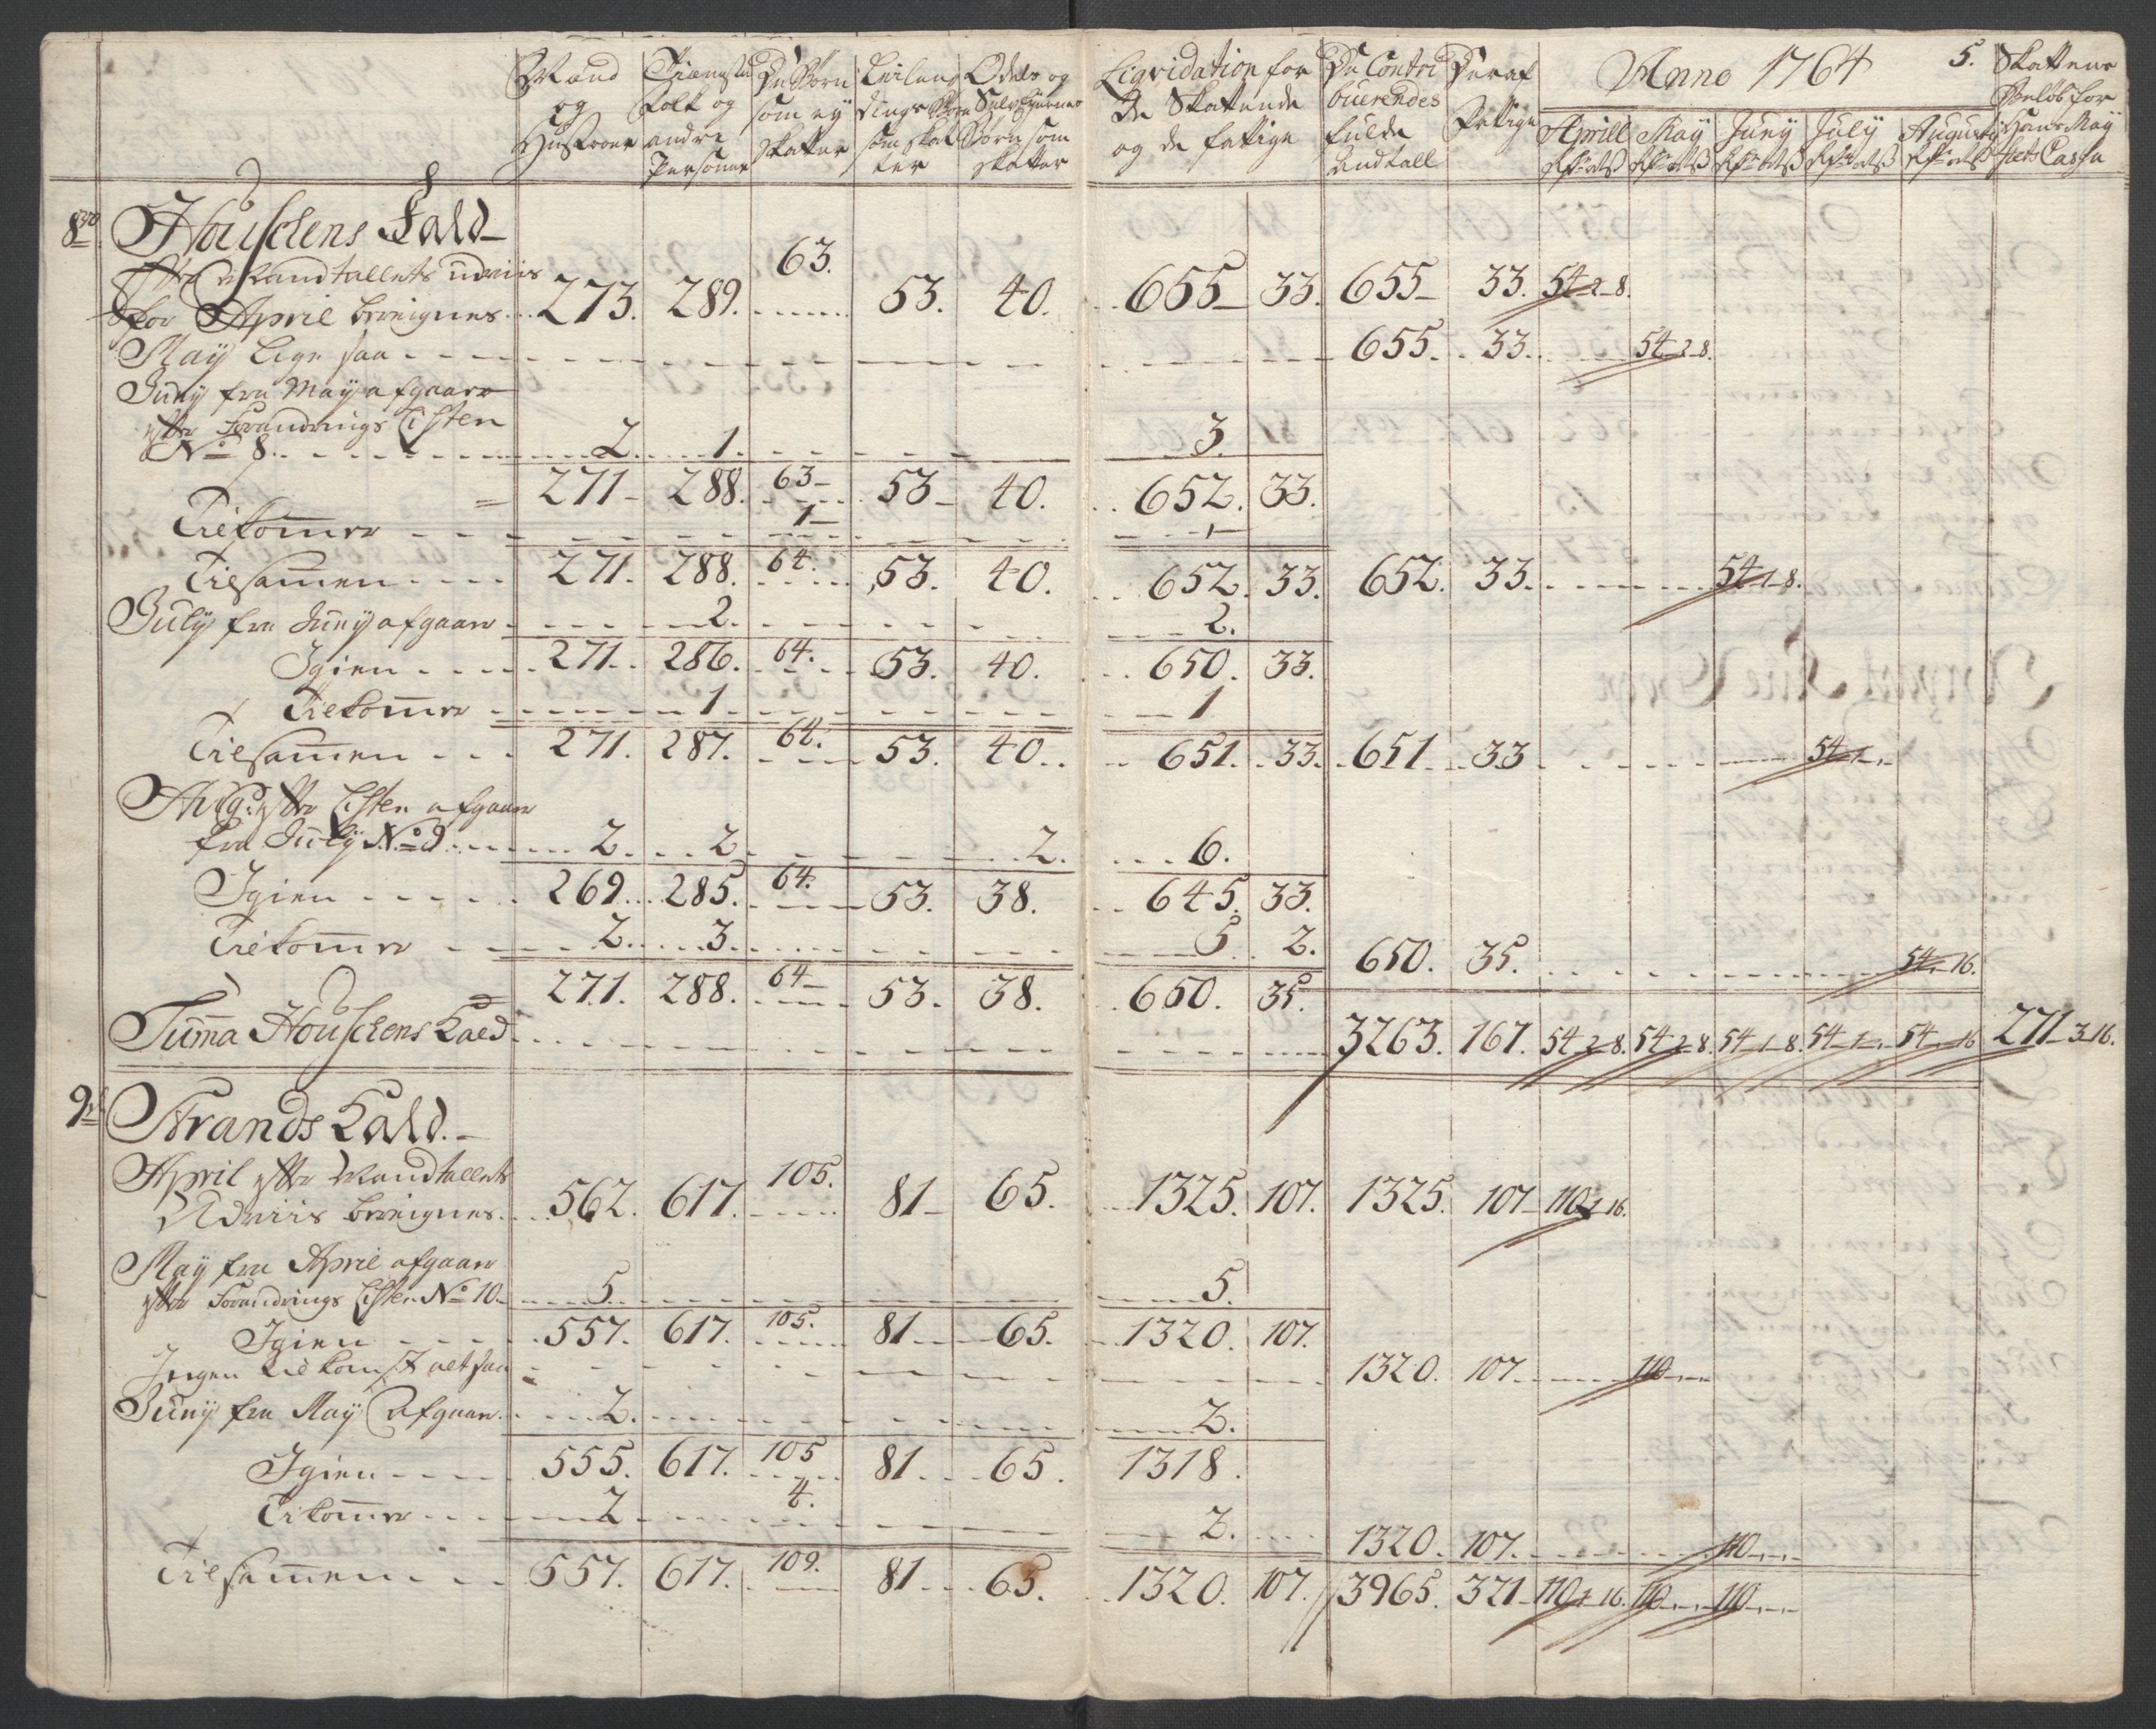 Mænd og Hustroer | Tieneste Folk og andre Personer | De Børn som ey skatter | Leilændings Børn som skatter | Odels og Selveyernes Børn som skatter | Liqvidation for De Skattende og de fattige | De Contribuerendes fulde Andtall | Deraf Fattige | Anno 1764 | 5. | Skattens Beløb for Hans May hets Cassa
Aprill | May | Juny | July | Augusty
8de Houschens Kald
Efter Mandtallets udviis
for April bereignes 273. 289. 63. 53. 40. 655 33. 655 33. 54-2-8.
May Lige saa 655. 33. 54-2-8.
Juny fra May afgaar
efter Forandrings Listen
No 8. 2. 1. 3.
271 288. 63 53 40. 652. 33.
Tilkommer 1 1
Tilsammen 271. 288. 64. 53. 40. 652. 33. 652. 33. 54-1-8.
July fra Juny afgaar 2. 2.
Igien 271. 286. 64. 53. 40. 650. 33.
Tilkommer 1 1
Tilsammen 271. 287. 64. 53. 40. 651. 33. 651 33 54-1-
Aug: efter Listen afgaar
fra July No 9 2. 2 2. 6.
Igien 269. 285. 64. 53. 38. 645. 33.
Tilkommer 2. 3. 5 2. 650. 35. 54-,-16.
271. 288. 64 53. 38. 650. 35.
Summa Houschens Kald 3263. 167. 54-2-8. 54-2-8. 54-1-8. 54-1-, 54-,-16 271-3-16.
9de Strands Kald.
April efter Mandtallets
Udviis bereignes 562. 617. 105. 81 65. 1325. 107. 1325. 107 110-1-16.
May fra April afgaar
efter Forandrings Listen No 10 5. 5.
Igien 557. 617. 105. 81 65. 1320. 107.
Ingen Tilkomst altsaa 1320. 107. 110
Juny fra May Afgaar 2. 2.
Igien 555. 617. 105 81. 65. 1318.
Tilkommer 2 4. 2. 1320. 107. 110
Tilsammen 557. 617. 109. 81 65. 1320. 107. 3965. 321 110-1-16. 110 110